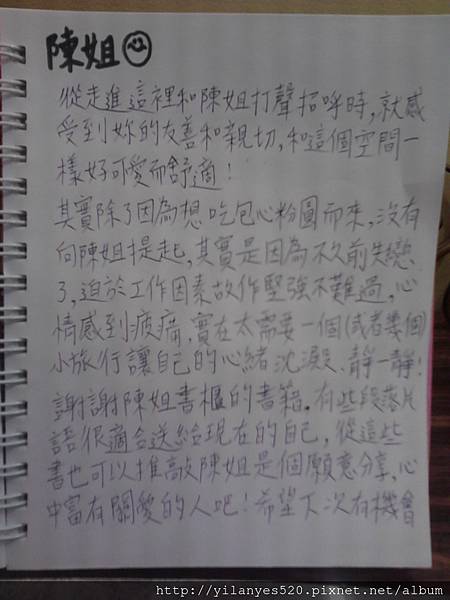 陳姐☺
從走進這裡和陳姐打聲招呼時,就感
受到妳的友善和親切,和這個空間一
樣好可愛而舒適!
其實除了因為想吃包心粉圓而來,沒有
向陳姐提起,其實是因為不久前失戀
了,迫於工作因素故作堅強不難過,心
情感到疲痛,實在太需要一個(或者幾個)
小旅行讓自己的心緒沈澱、靜一靜!
謝謝陳姐書櫃的書籍,有些段落片
語很適合送給現在的自己,從這些
書也可以推敲陳姐是個願意分享,心
中富有關愛的人吧!希望下次有機會
http://yilanyes520.pixnet.net/album